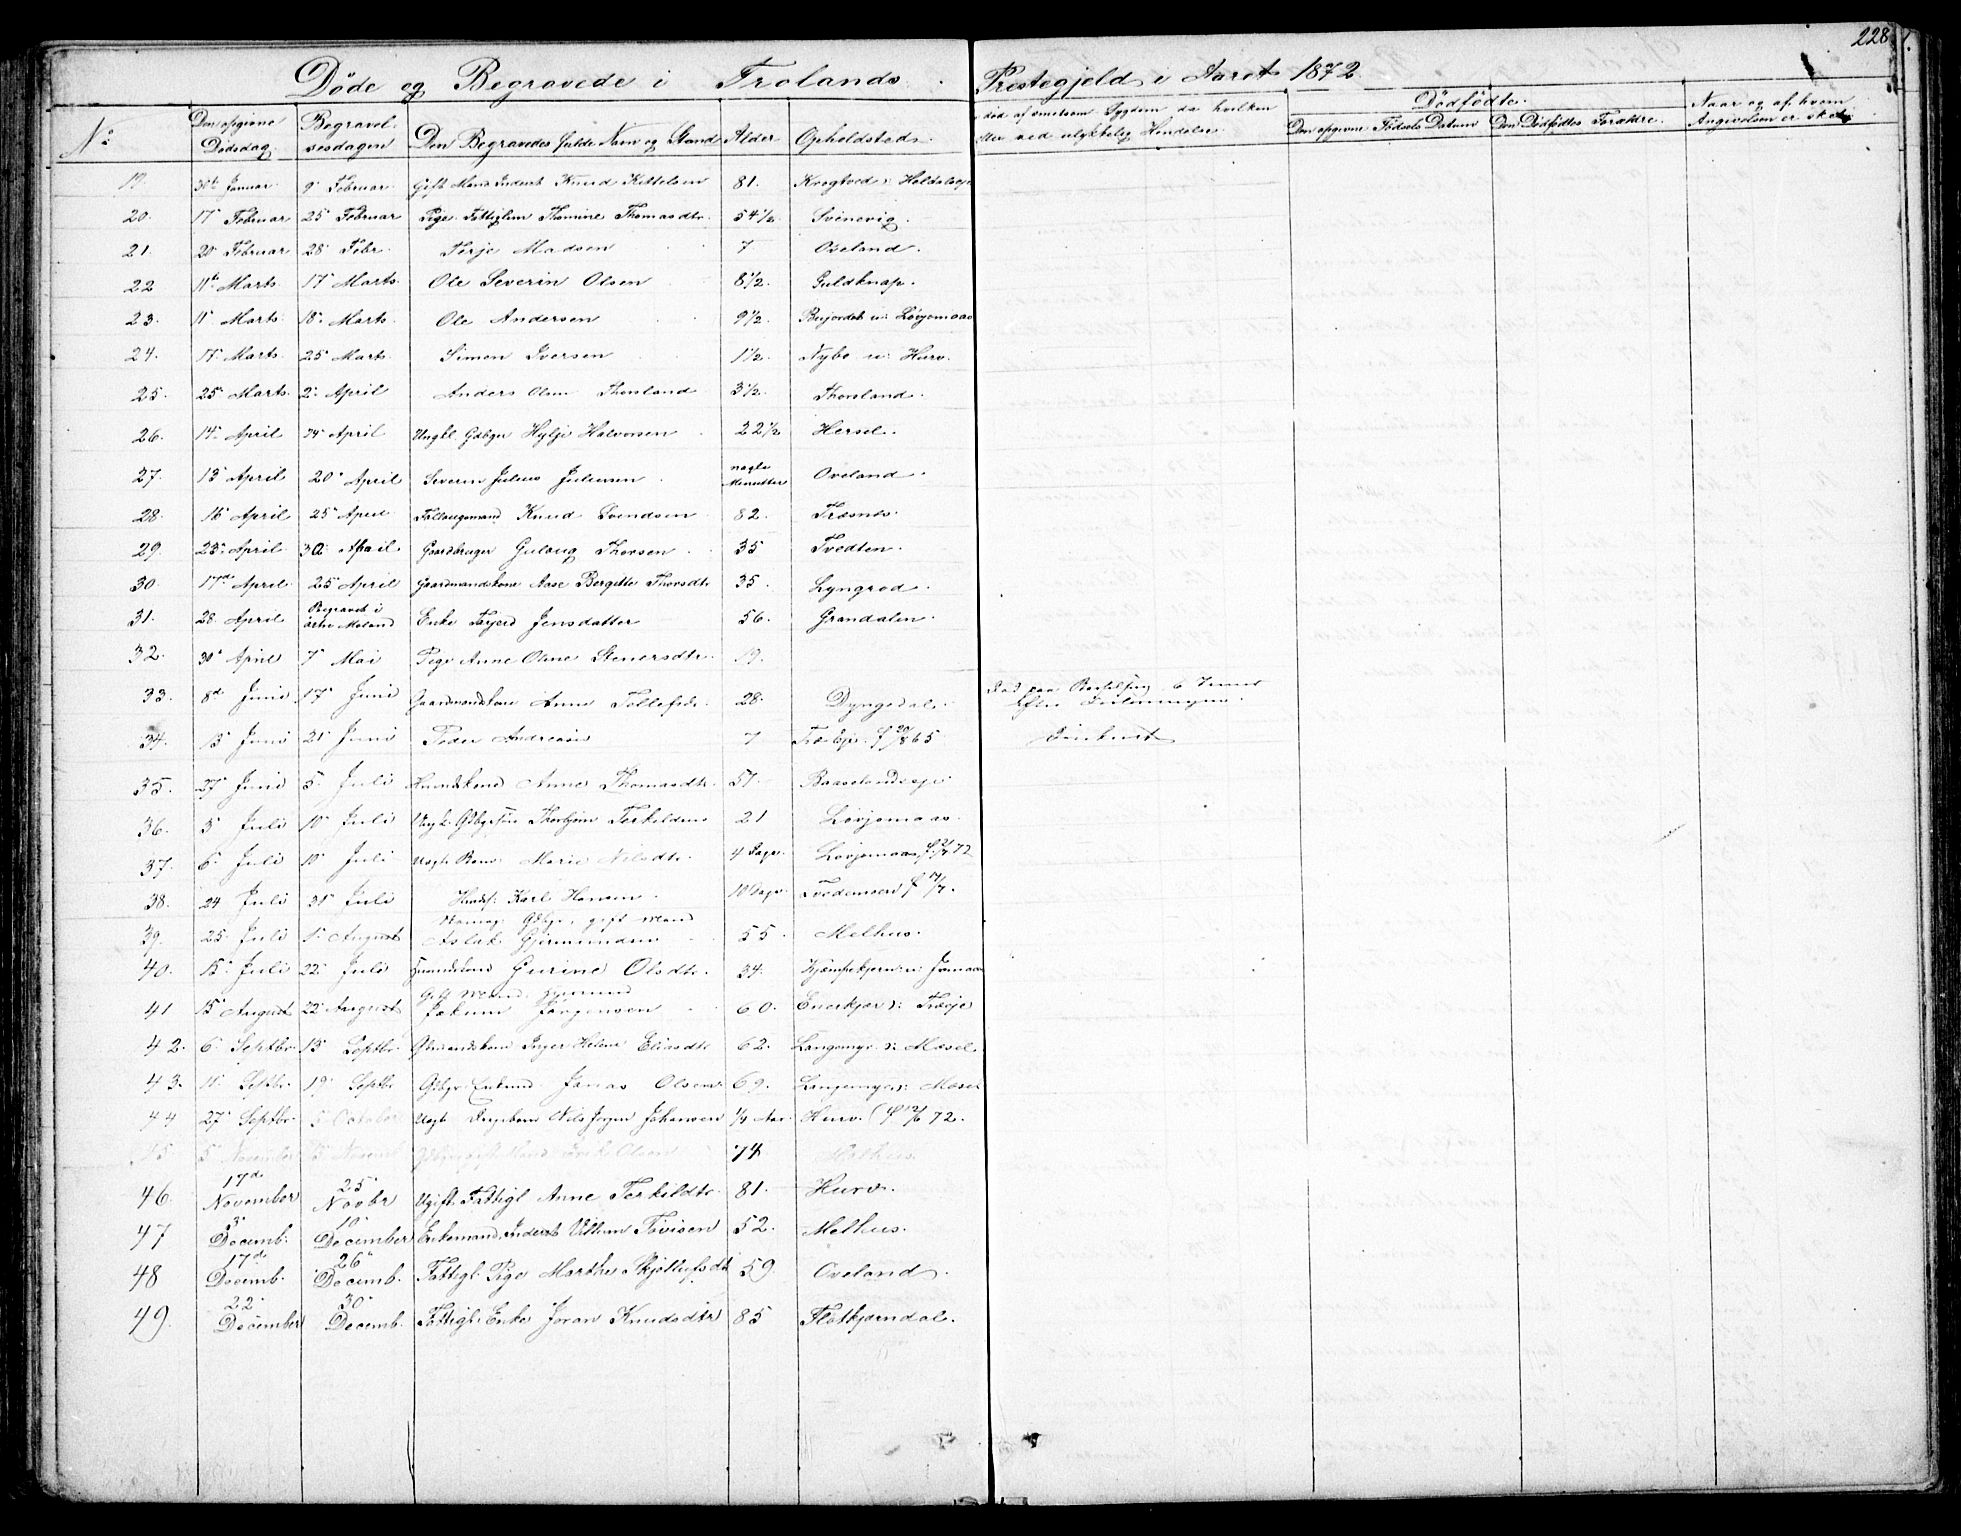 228
Døde og Begravede i Frolands Prestegjeld i Aaret 1872.
No. Den opgivne Dødsdag Begravelsesdagen Den Begravedes fulde Navn og Stand Alder Opholdsted død af smitsom Sygdom da hvilken eller ved ulykkelig Hendelse. Dødfødte. Den opgivne Fødsels Datum Den Dødfødtes Forældre. Naar og af hvem Angivelsen er skeet
19. 30te Januar 9 Februar Gift Mand Inderst Knud Kittelsen 81.
20. 17 Februar 25 Februar Pige Fattiglem Thomine Thomasdtr. 54 1/2 Svinevig.
21. 20 Februar 28 Febr. Terje Madsen 7 Oveland.
22 11te Marts 17 Marts. Ole Severin Olsen 8 1/2. Guldknap.
23. 11 Marts. 18 Marts. Ole Andersen 9 1/2. u: Løvjomaas
24. 17 Marts. 25 Marts. Simon Iversen 1 1/2. Nybo u: Hurv.
25. 25 Marts. 2 April Anders Olsen Thorsland 3 1/2. Thorsland.
26. 14 April 24 April Ungkl. Gdbgr Hylje Halvorsen 22 1/2 Hersel.
27. 13 April 20 April Severin Julius Juliusen nogle Minutter Oveland.
28. 16 April 25 April Follaugsmand Knud Svendsen 82. Træsnes.
29. 23 April 30 April Gaardbruger Gulaug Thorsen 35 Tvedten.
30. 17de April. 25 April Gaardmandskone Aase Bergitte Thorsdtr 35. Lyngrod.
31. 28 April Begravet i østre Moland Enke Jensdatter 56. Grandalen.
32. 30 April 7 Mai Pige Anne Oline Stenersdtr. 19.
33. 8de Juni 17 Juni Gaardmandskone Anne Tollefsdtr. 28. Dyngedal. Død paa Barselseng 6 Timer efter
34. 13 Juni 21 Juni Peder Andreasen 7 f 20/8 65. Druknet
35. 27 Juni 5 Juli Huusmdskone Anne Thomasdtr. 57. Baaselandseje
36. 3 Juli 10 Juli Ungk. Gdbgrsøn Thorbjørn Terkildsen 21 Løvjomaas.
37. 6 Juli 10 Juli Uægte Barn Marie Nilsdtr. 4 Dage. Løvjomaas, f 2/7 72
38. 24 Juli 31 Juli Karl Hansen 10 Dage. f 14/7.
39. 25 Juli 1 August Gdbgr. gift Mand Aslak Gjermundsen 55. Melhus.
40. 15 Juli 22 Juli Huusmdskone Gurine Olsdtr. 34.
41 15 August 22 August Gift Mand, Huusmand Jakum Jørgensen 60.
42. 6 Septbr. 13 Septbr. Gdmandskone Inger Helene Eliasdtr 62. Langemyr u: Mæsel.
43. 11 Septbr. 19 Septbr Gdbgr Enkmd. Jonas Olsen 69. Langemyr u: Mæsel
44 27 Septbr. 5 October Uægte Drengebarn Nils Jørgen Johansen 1/4 Aar. Hurv. (f 12/6 72.
45 5 November 13 Novemb. Gdbgr gift Mand Olsen 74 Melhus.
46. 17de November 25 Novbr Ugift Fattigl. Anne Terkildtr. 81. Hurv.
47 3 Decemb. 10 December Enkemand, Inderst Villum Tovisen 52. Melhus.
48 17de Decemb. 26 Decemb. Fattigl. Pige Marthe Skjøllufsdtr 59. Oveland.
49. 22 December 30 Decemb. Fattigl. Enke Joran Knudsdtr 85 Flatkjærndal.